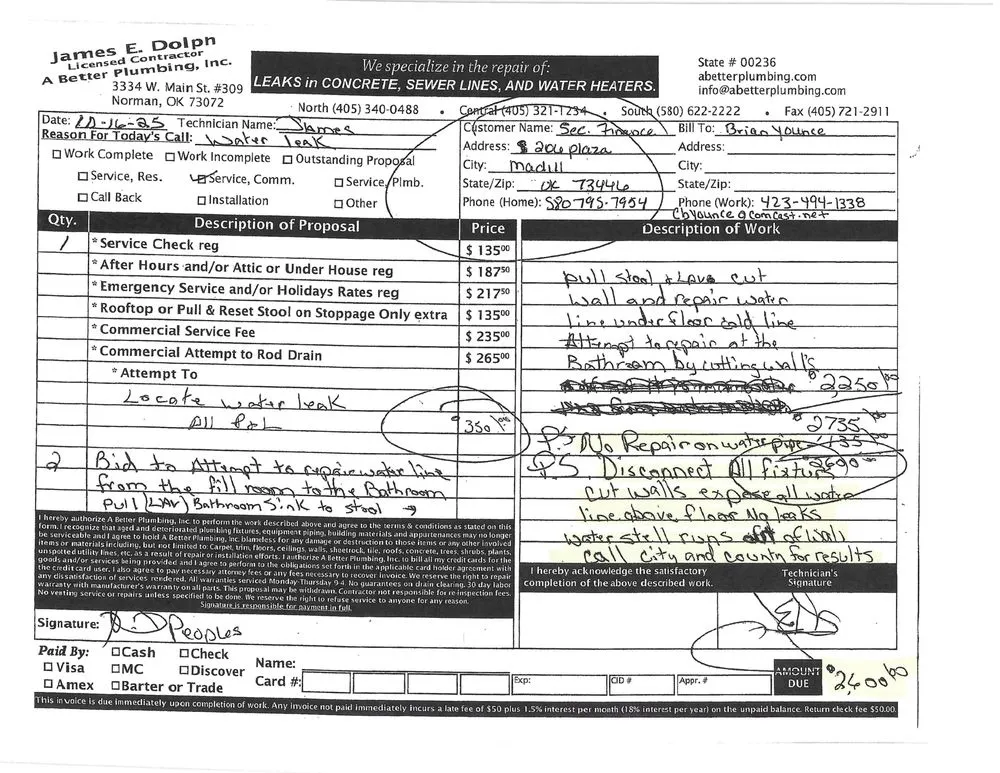 James E. Dolpn
Licensed Contractor
A Better Plumbing, Inc.
3334 W. Main St. #309
Norman, OK 73072
We specialize in the repair of:
LEAKS in CONCRETE, SEWER LINES, AND WATER HEATERS.
State # 00236
abetterplumbing.com
info@abetterplumbing.com
North (405) 340-0488 • Central (405) 321-1234 • South (580) 622-2222 • Fax (405) 721-2911
Date: 10-16-25 Technician Name: James
Reason For Today's Call: Water leak
Work Complete Work Incomplete Outstanding Proposal
Service, Res. Service, Comm. Service, Plmb.
Call Back Installation Other
Customer Name: Sec. Finance
Address: 206 plaza
City: Madill
State/Zip: OK 73446
Phone (Home): 580 795-7954
Bill To: Brian Younce
Address:
City:
State/Zip:
Phone (Work): 423-494-1338
cbyounce@comcast.net
Qty. Description of Proposal Price
1 * Service Check reg $ 135.00
* After Hours and/or Attic or Under House reg $ 187.50
* Emergency Service and/or Holidays Rates reg $ 217.50
* Rooftop or Pull & Reset Stool on Stoppage Only extra $ 135.00
* Commercial Service Fee $ 235.00
* Commercial Attempt to Rod Drain $ 265.00
* Attempt To
Locate water leak
All P&L 350.00
2 Bid to Attempt to repair water line
from the fill room to the Bathroom
Pull (LAV) Bathroom Sink to stool →
Description of Work
pull stool + Lave cut
wall and repair water
line under floor cold line
Attempt to repair at the
Bathroom by cutting walls
$ 2250.00
$ 2735.00
P.S No Repair on water pipe - 135.00
P.S. Disconnect All fixture 2600.00
cut walls expose all water
line above floor No leaks
water still runs out of wall
call City and county for results
I hereby authorize A Better Plumbing, Inc. to perform the work described above and agree to the terms & conditions as stated on this
form. I recognize that aged and deteriorated plumbing fixtures, equipment piping, building materials and appurtenances may no longer
be serviceable and I agree to hold A Better Plumbing, Inc. blameless for any damage or destruction to those items or any other involved
items or materials including, but not limited to: Carpet, trim, floors, ceilings, walls, sheetrock, tile, roofs, concrete, trees, shrubs, plants,
unspotted utility lines, etc. as a result of repair or installation efforts. I authorize A Better Plumbing, Inc. to bill my credit cards for the
goods and/or services being provided and I agree to perform to the obligations set forth in the applicable card holder agreement with
the credit card user. I also agree to pay necessary attorney fees or any fees necessary to recover Invoice. We reserve the right to repair
any dissatisfaction of services rendered. All warranties serviced Monday-Thursday 9-4. No guarantees on drain clearing. 30 day labor
warranty with manufacturer's warranty on all parts. This proposal may be withdrawn. Contractor not responsible for re-inspection fees.
No venting service or repairs unless specified to be done. We reserve the right to refuse service to anyone for any reason.
Signature is responsible for payment in full.
I hereby acknowledge the satisfactory
completion of the above described work.
Technician's
Signature
Signature: Peoples
Paid By: Cash Check
Visa MC Discover
Amex Barter or Trade
Name:
Card #: Exp: CID # Appr. #
AMOUNT
DUE
$ 2,600.00
This invoice is due immediately upon completion of work. Any invoice not paid immediately incurs a late fee of $50 plus 1.5% interest per month (18% interest per year) on the unpaid balance. Return check fee $50.00.